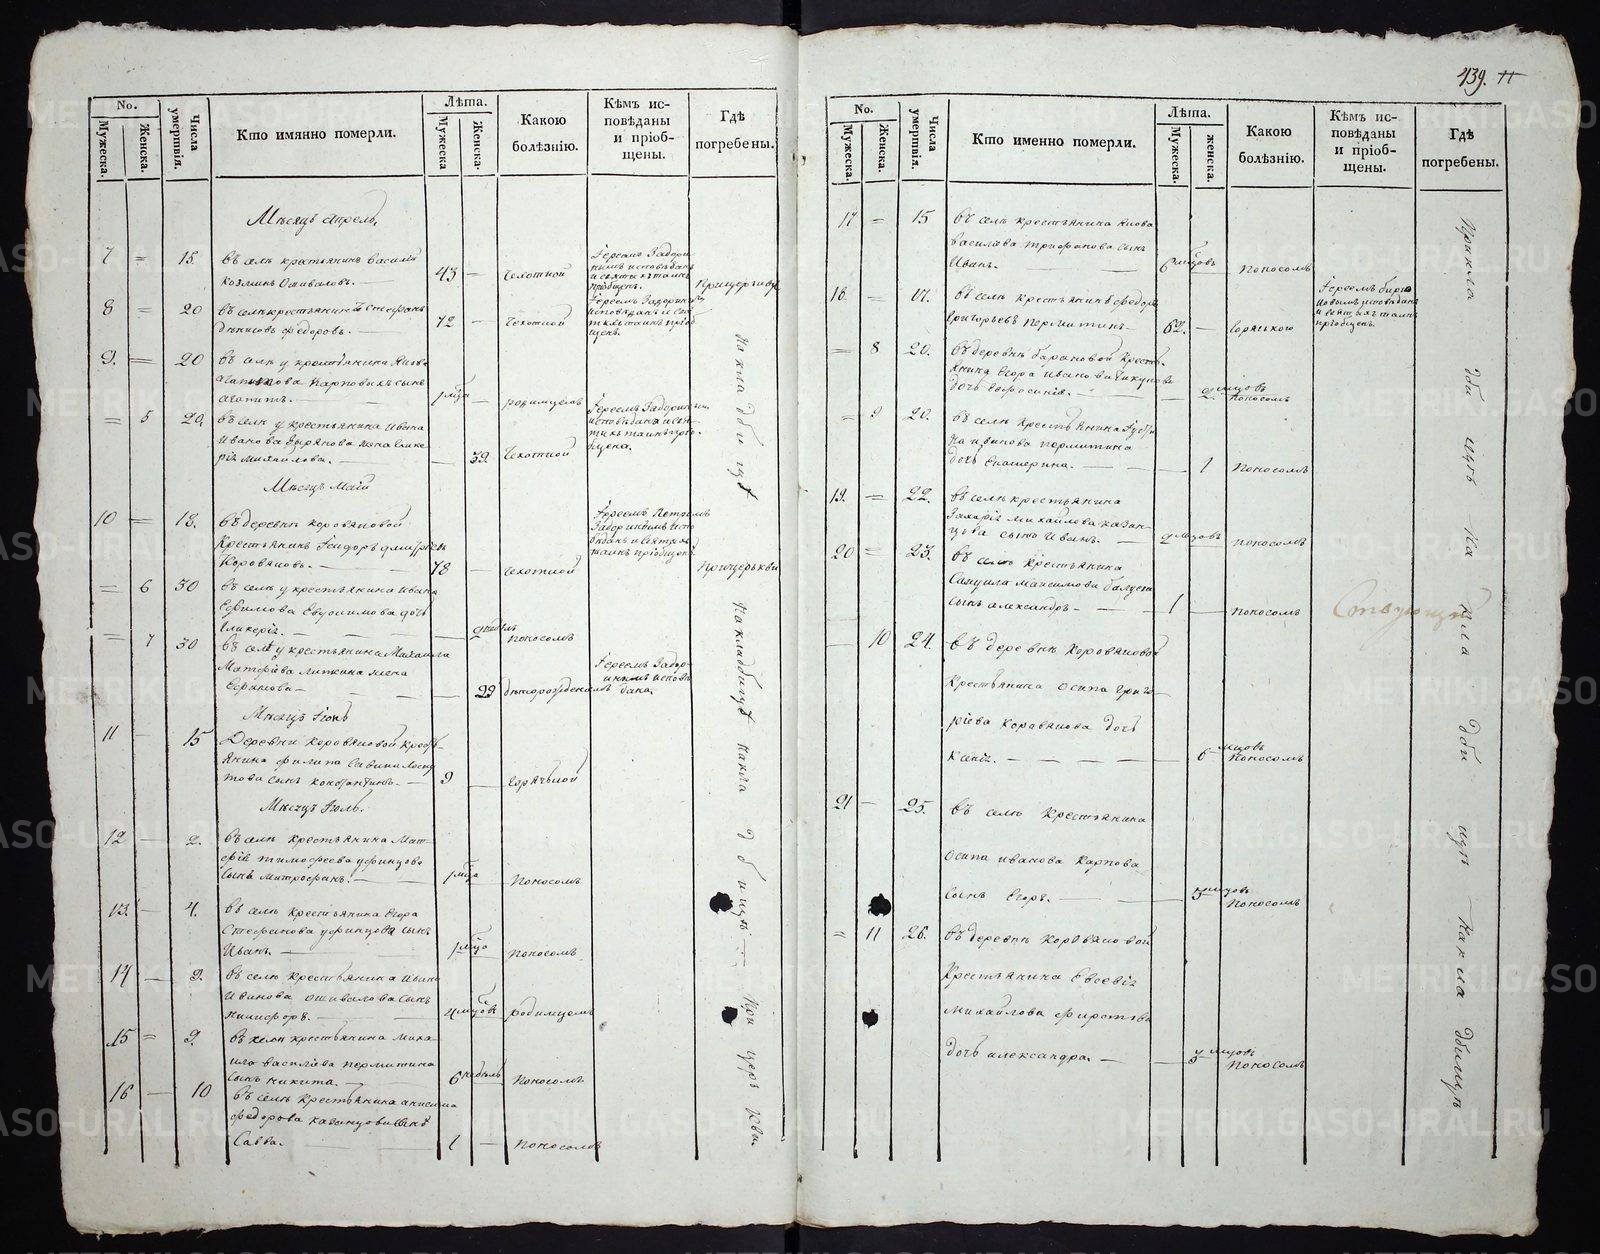 439.
No.
Мужеска.
Женска.
Числа умертвія.
Кто имянно померли.
Лѣта.
Мужеска.
Женска.
Какою болѣзнію.
Кѣмъ исповѣданы и пріобщены.
Гдѣ погребены.
Мѣсяцъ Апрель.
7 = 15. Въ селѣ крестьянинъ Василій
Козминъ Ошиваловъ. — 43 — Чехоткой
Іереемъ Задориннымъ исповѣданъ и святыхъ таинъ пріобщенъ.
При церкви
8 = 20 Въ селѣ крестьянинъ Стефанъ
Денисовъ Федоровъ. — 72 — Чехоткой
Іереемъ Задоринымъ исповѣданъ и святыхъ таинъ пріобщенъ.
9. = 20 Въ селѣ у крестьянина Якова
Агапитова Карповыхъ сынъ
Агапитъ. — 1 мѣца — родимцемъ
= 5 29. Въ селѣ у крестьянина Ивана
Иванова жена Глике-
рія Михайлова. — 39. Чехоткой
Іереемъ Задоринымъ исповѣдана и святыхъ таинъ пріобщена.
Мѣсяцъ Май
10 = 13. Въ деревнѣ Коровяковой
Крестьянинъ Ісидоръ Дмитріевъ
Коровяковъ. — 78 — Чехоткой
Іереемъ Петромъ Задоринымъ исповѣданъ и святыхъ таинъ пріобщенъ
При церькви
= 6 30 Въ селѣ у крестьянина Ивана
Ефимова Евдокимова дочь
Гликерія. — 2 недѣль поносомъ
= 7 30 Въ селѣ у крестьянина Михаила
Матфіева жена
— 29 дѣторожденіемъ
Іереемъ Задоринымъ исповѣдана.
Мѣсяцъ Іюнь
11 — 15 Деревни Коровяковой Кресть-
янина Филипа Савина
сынъ Константинъ. — 9 — Горячкой
Мѣсяцъ Іюль.
12 — 2. Въ селѣ крестьянина Мат-
фія Тимофеева Уфинцова
сынъ Митрофанъ. — 1 мѣца поносомъ
13. — 4. Въ селѣ крестьянина Егора
Стефанова Уфинцова сынъ
Иванъ. — 1 мѣца поносомъ
14 — 9. Въ селѣ крестьянина Ивана
Иванова Ошивалова сынъ
Никифоръ. — 4 мцовъ родимцемъ
15 = 9. Въ селѣ крестьянина Миха-
ила Василіева Пермитина
сынъ Никита. — 6 недѣль поносомъ
16 — 10 Въ селѣ крестьянина Анисима
Федорова Казанцова сынъ
Савва. — 1 — поносомъ
На кладбищѣ
На кладбищѣ
На кладбищѣ
При церькви.
No.
Мужеска.
Женска.
Числа умертвія.
Кто именно померли.
Лѣта.
Мужеска.
женска.
Какою болѣзнію.
Кѣмъ исповѣданы и пріобщены.
Гдѣ погребены.
17 = 15 Въ селѣ крестьянина Якова
Василіева Трифанова сынъ
Иванъ. — 6 мцовъ поносомъ
18. = 17. Въ селѣ крестьянинъ Федоръ
Григорьевъ Пермитинъ — 62. — Горячкою
= 8 20. Въ деревнѣ Барановой Кресть-
янина Егора Иванова Чикунова
дочь Ефросинія. — 2 мцовъ поносомъ
= 9 20. Въ селѣ крестьянина
Пермитина
дочь Екатерина. — 1 поносомъ
19. = 22. Въ селѣ крестьянина
Захарія Михайлова Казан-
цова сынъ Иванъ. — 2 мцовъ поносомъ
20 = 23. Въ селѣ крестьянина
Самуила Максимова
сынъ Александръ — 1 — поносомъ
— 10 24. Въ деревнѣ Коровяковой
крестьянина Осипа Григо-
ріева Коровякова дочь
Ксенія. — 6 мцовъ поносомъ
21 — 25. Въ селѣ крестьянина
Осипа Иванова Карпова
сынъ Егоръ. — мцовъ поносомъ
= 11 26. Въ деревнѣ Коровяковой
Крестьянина Евсевія
Михайлова
дочь Александра. — мцовъ поносомъ
При кладбищѣ
На кладбищѣ
На кладбищѣ
METRIKI.GASO-URAL.RU